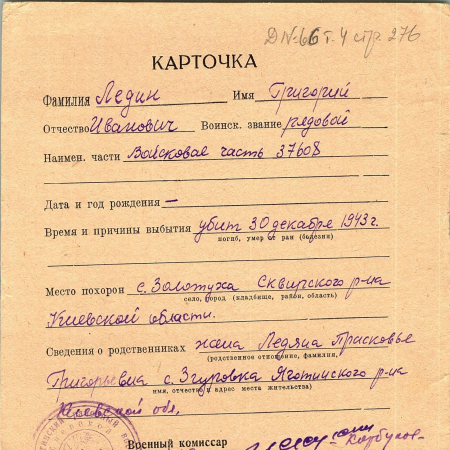 DN-66 т. 4 стр. 276
КАРТОЧКА
Фамилия Ледин Имя Григорий
Отчество Иванович Воинск. звание рядовой
Наимен. части Войсковая часть 37608
Дата и год рождения —
Время и причины выбытия убит 30 декабря 1943 г.
погиб, умер от ран (болезни)
Место похорон с. Золотуха Сквирского р-на
село, город (кладбище, район, область)
Киевской области.
Сведения о родственниках жена Ледяна Присковье
(родственное отношение, фамилия,
Григорьевна с. Згуровка Яготинского р-на
имя, отчество и адрес места жительства)
Киевской обл.
Военный комиссар